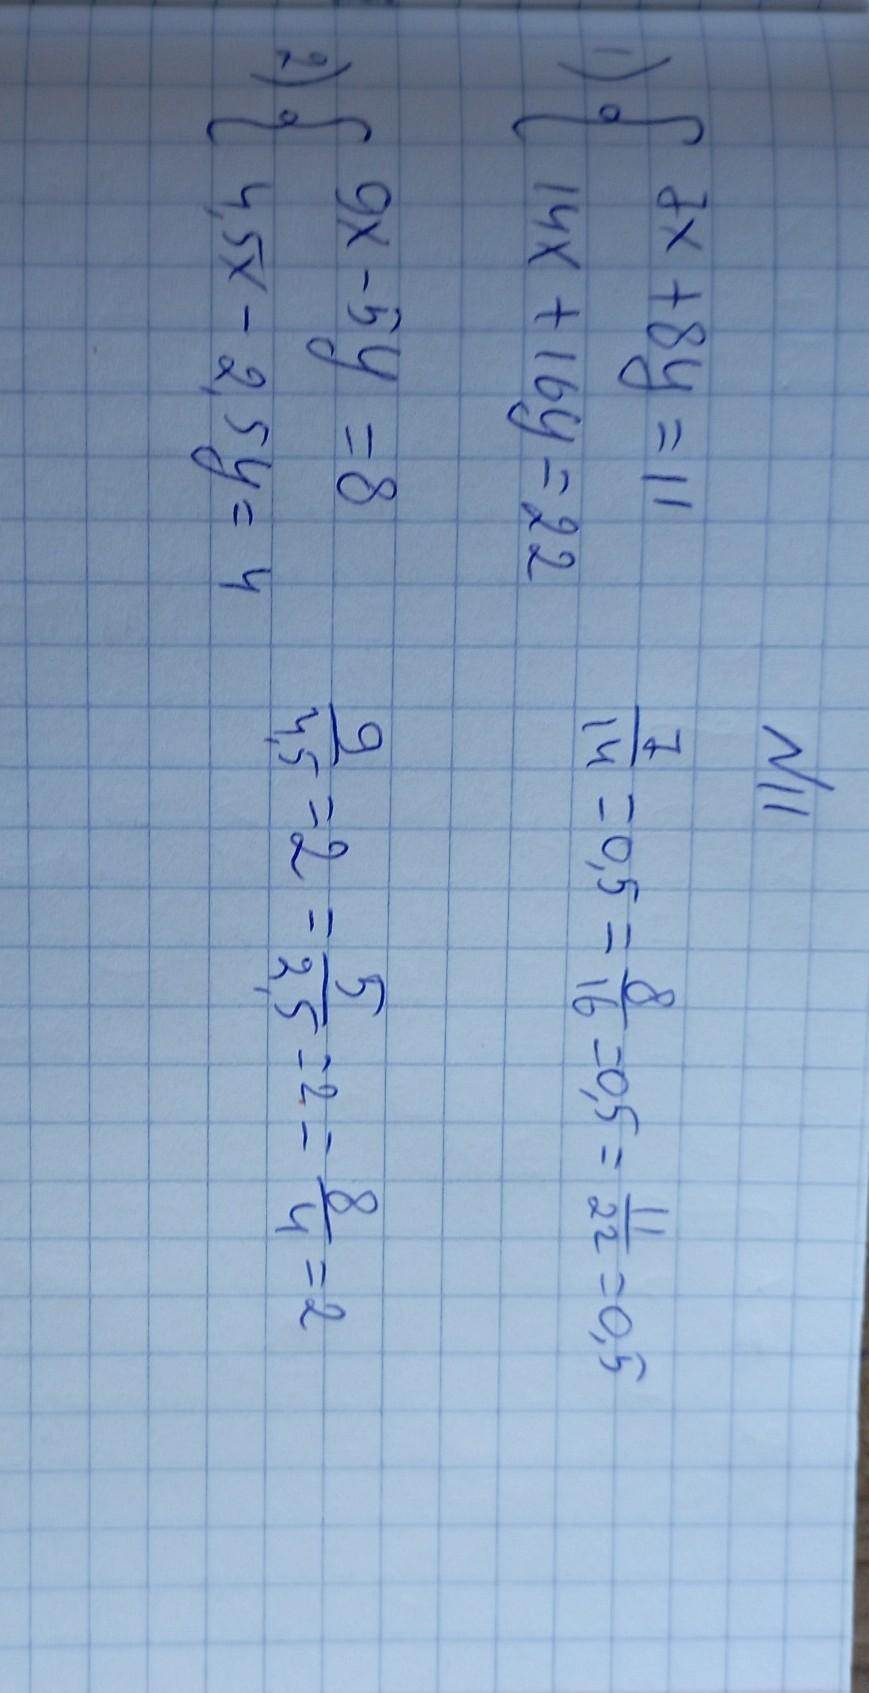 N11
1) { 7x + 8y = 11
14x + 16y = 22
7/14 = 0,5 = 8/16 = 0,5 = 11/22 = 0,5
2) { 9x - 5y = 8
4,5x - 2,5y = 4
9/4,5 = 2 = 5/2,5 = 2 = 8/4 = 2